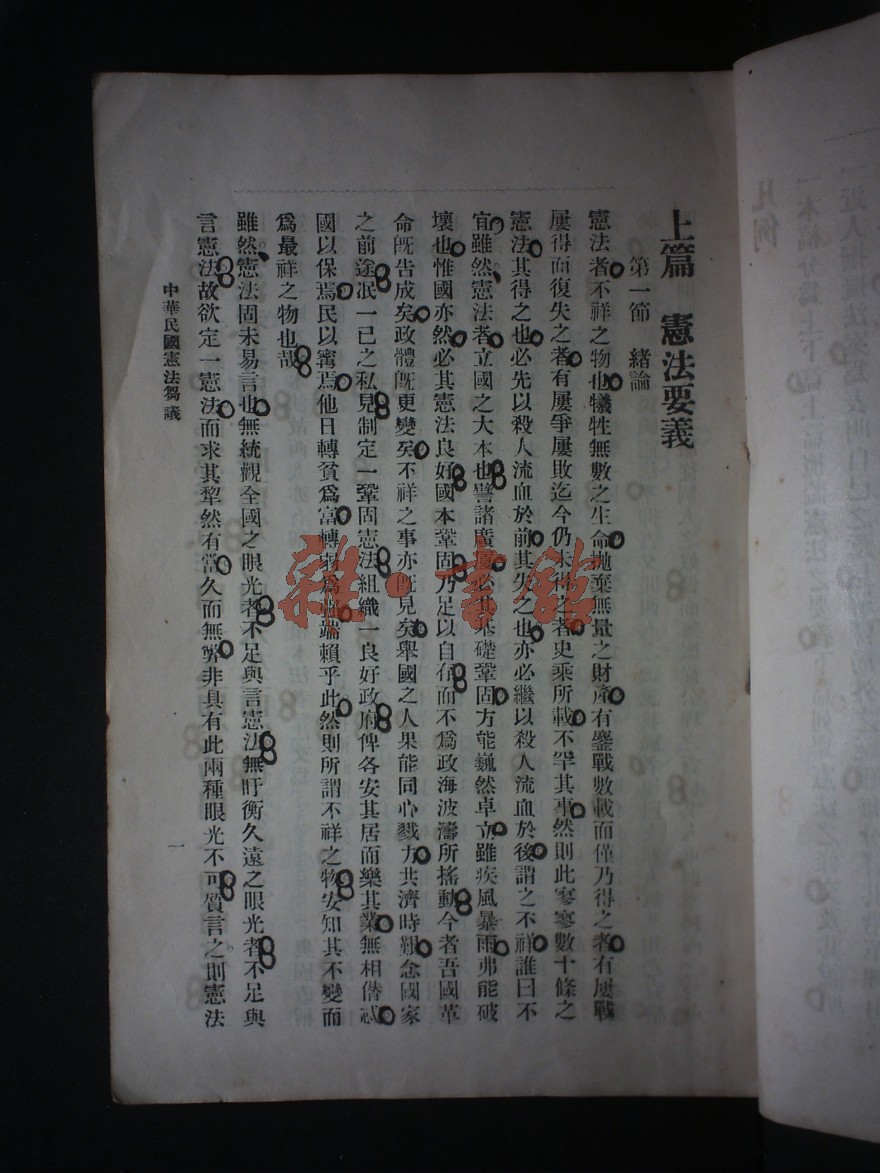 上篇 憲法要義
第一節 緒論
憲法者不祥之物也犧牲無數之生命拋棄無量之財產有鏖戰數載而僅乃得之者有屢戰
屢得而復失之者有屢爭屢敗迄今仍未得之者史乘所載不罕其事然則此寥寥數十條之
憲法其得之也必先以殺人流血於前其失之也亦必繼以殺人流血於後謂之不祥誰曰不
宜雖然憲法者立國之大本也譬諸廣廈必其基礎鞏固方能巍然卓立雖疾風暴雨弗能破
壞也惟國亦然必其憲法良好國本鞏固乃足以自存而不為政海波濤所搖動今者吾國革
命既告成矣政體既更變矣不祥之事亦既見矣舉國之人果能同心戮力共濟時艱念國家
之前途泯一己之私見制定一鞏固憲法組織一良好政府俾各安其居而樂其業無相僭忒
國以保焉民以寗焉他日轉貧為富轉弱為強端賴乎此然則所謂不祥之物安知其不變而
為最祥之物也哉
雖然憲法固未易言也無統觀全國之眼光者不足與言憲法無盱衡久遠之眼光者不足與
言憲法故欲定一憲法而求其犂然有當久而無弊非具有此兩種眼光不可質言之則憲法
中華民國憲法芻議
一
雜·書館
凡例